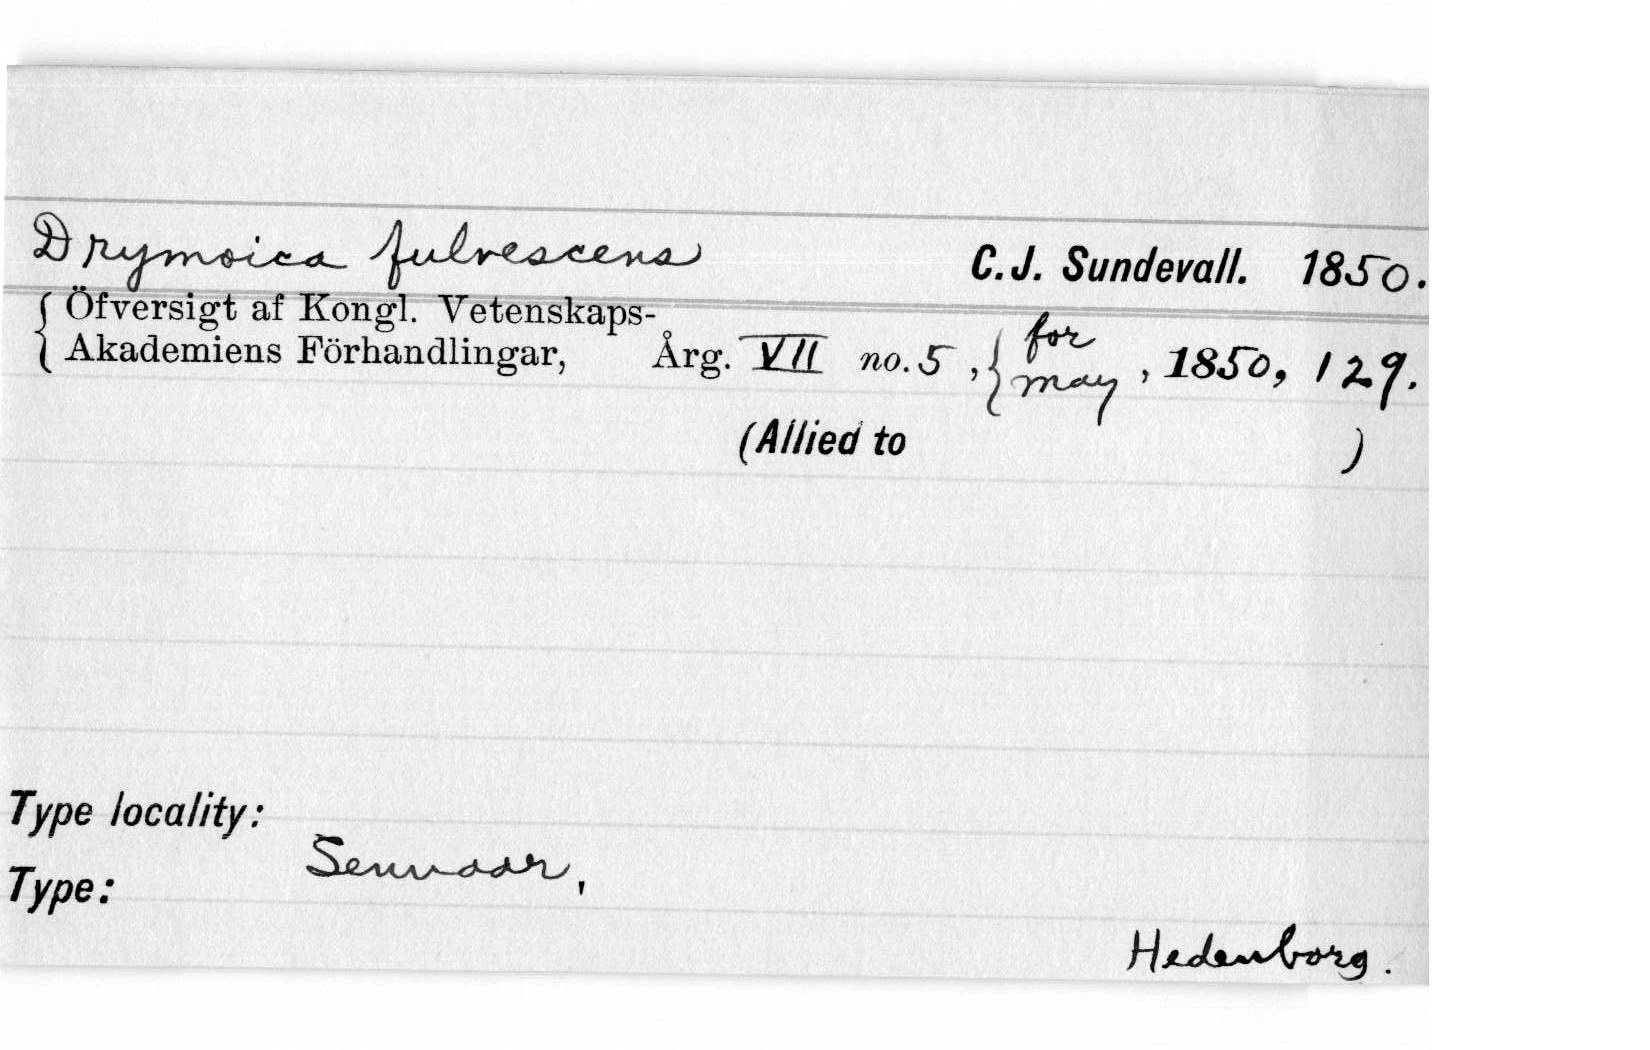 Drymoica fulvescens C. J. Sundevall. 1850.
{ Öfversigt af Kongl. Vetenskaps-
{ Akademiens Förhandlingar, Årg. VII no. 5, { for may, 1850, 129.
(Allied to )
Type locality:
Sennaar,
Type:
Hedenborg.